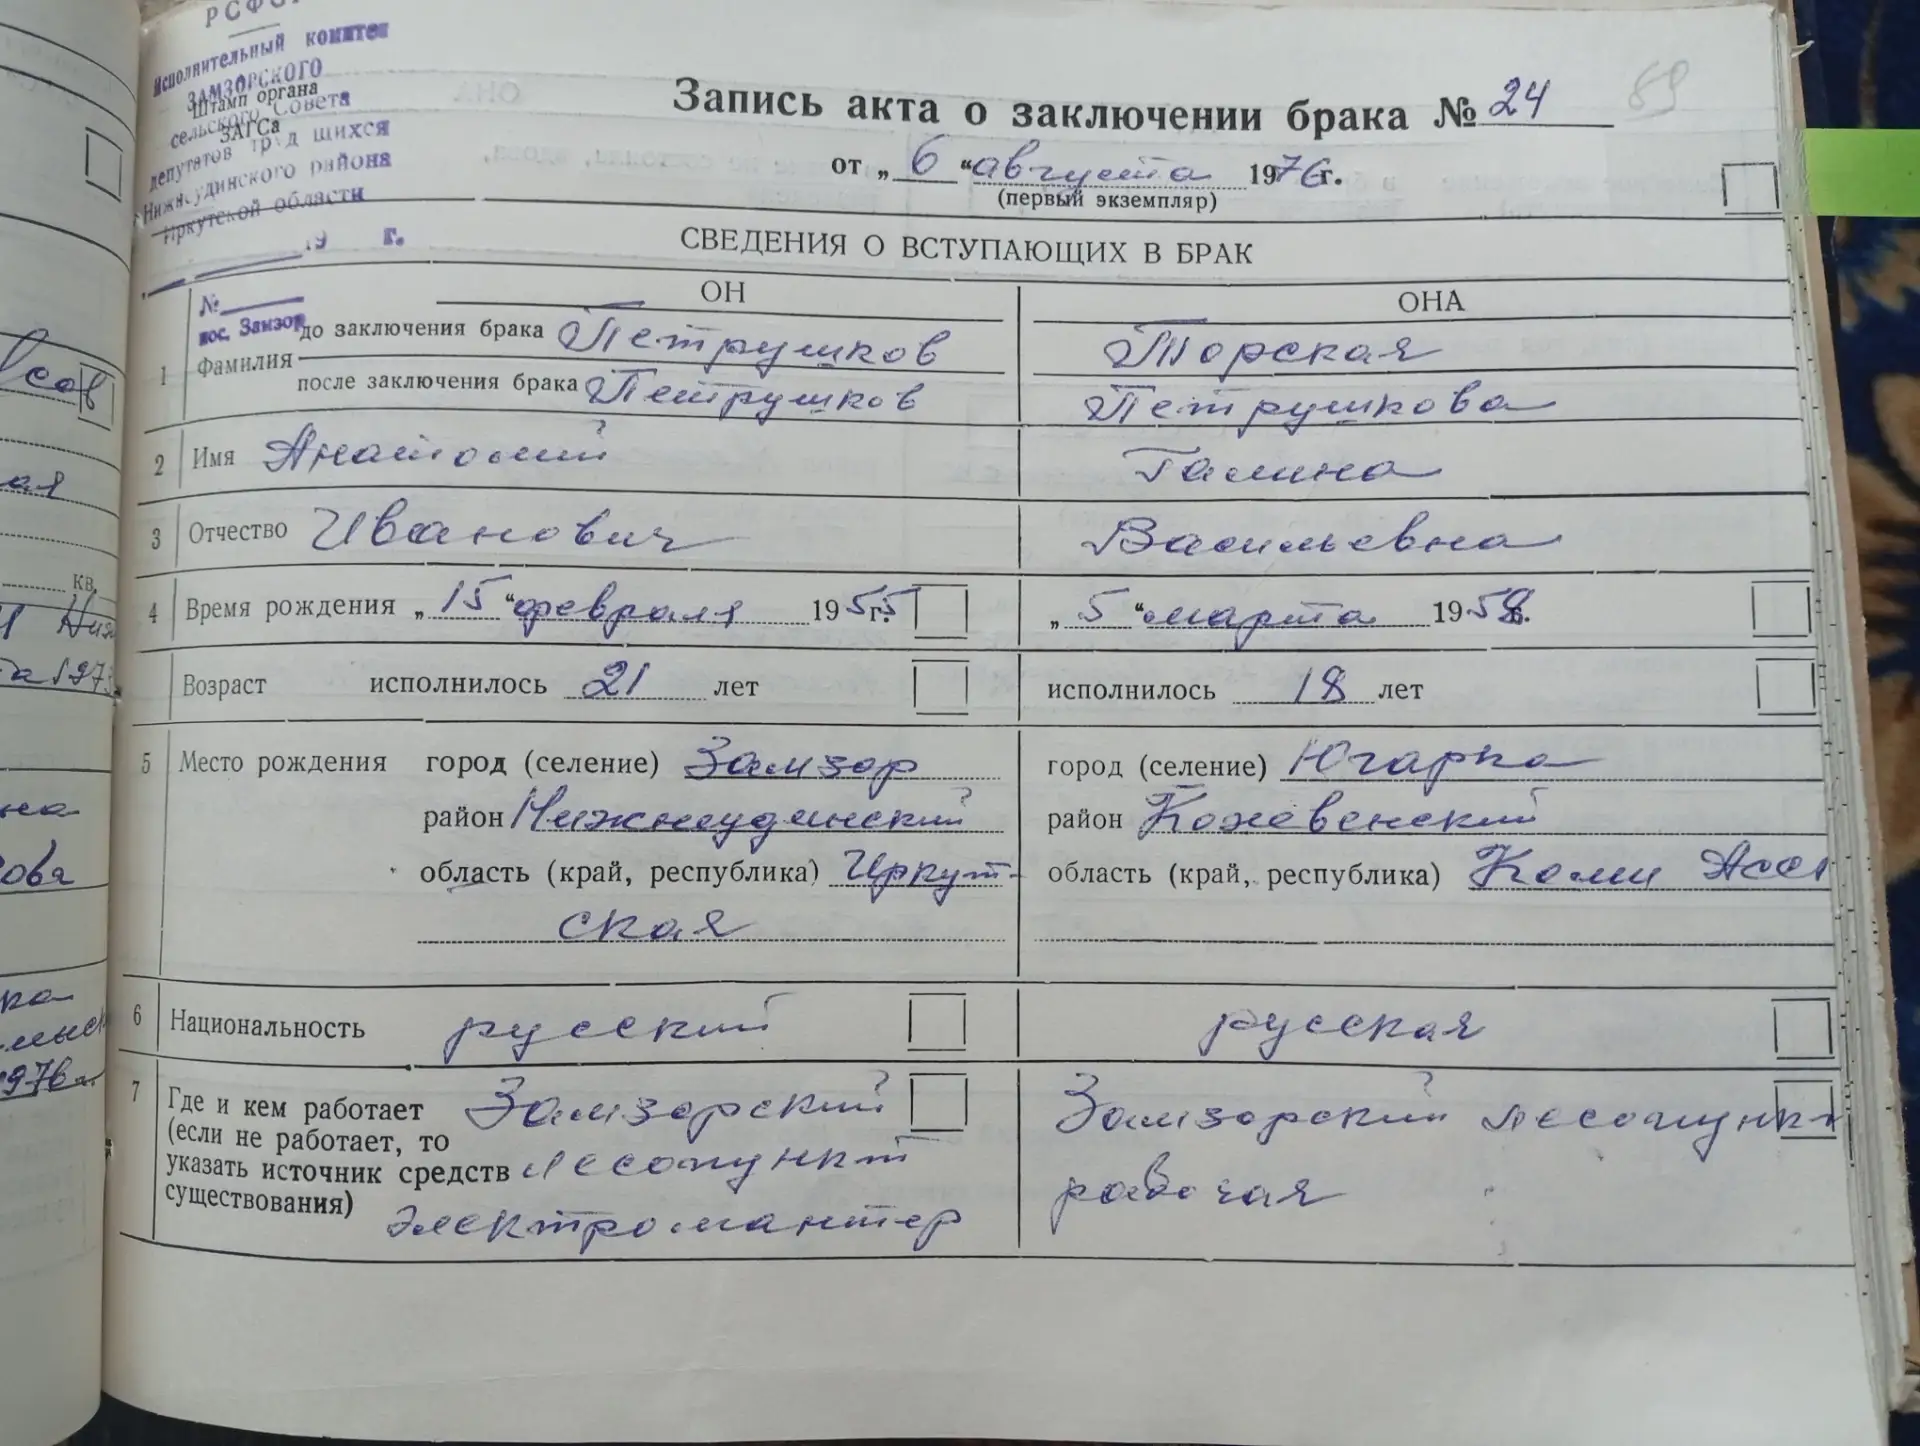 РСФСР
Исполнительный комитет
ЗАМЗОРСКОГО
Штамп органа
сельского Совета
ЗАГСа
депутатов трудящихся
Нижнеудинского района
Иркутской области
19 г.
№
пос. Замзор
Запись акта о заключении брака № 24
89
от „ 6 “ августа 1976 г.
(первый экземпляр)
СВЕДЕНИЯ О ВСТУПАЮЩИХ В БРАК
ОН ОНА
1 Фамилия до заключения брака Петрушков Торская
после заключения брака Петрушков Петрушкова
2 Имя Анатолий Галина
3 Отчество Иванович Васильевна
4 Время рождения „ 15 “ февраля 1955 г. „ 5 “ марта 1958 г.
Возраст исполнилось 21 лет исполнилось 18 лет
5 Место рождения город (селение) Замзор город (селение) Югарка
район Нижнеудинский район Кожевенский
область (край, республика) Иркут- область (край, республика) Коми Асс
ская
6 Национальность русский русская
7 Где и кем работает Замзорский Замзорский лесопункт
(если не работает, то
указать источник средств лесопункт рабочая
существования)
электромантер
кв.